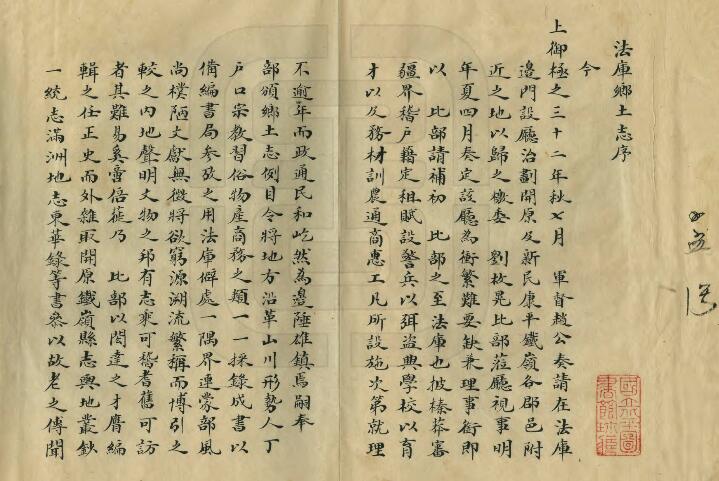 法庫鄉土志序
今
上御極之三十二年秋七月　軍督趙公奏請在法庫
邊門設廳治劃開原及新民康平鐵嶺各郡邑附
近之地以歸之檄委　劉枚晃比部蒞廳視事明
年夏四月奏定該廳為衝繁難要缺兼理事銜即
以　比部請補初　比部之至法庫也披榛莽審
疆界稽戶籍定租賦設警兵以弭盜興學校以育
才以及務材訓農通商惠工凡所設施次第就理
不逾年而政通民和屹然為邊陲雄鎮焉嗣奉
部頒鄉土志例目令將地方沿革山川形勢人丁
戶口宗教習俗物產商務之類一一採錄成書以
備編書局參攷之用法庫僻處一隅界連蒙部風
尚樸陋文獻無徵將欲窮源溯流繁稱而博引之
較之內地聲明文物之邦有志乘可稽耆舊可訪
者其難易奚啻倍蓰乃　比部以閎達之才膺編
輯之任正史而外雜取開原鐵嶺縣志輿地叢鈔
一統志滿洲地志東華錄等書參以故老之傳聞